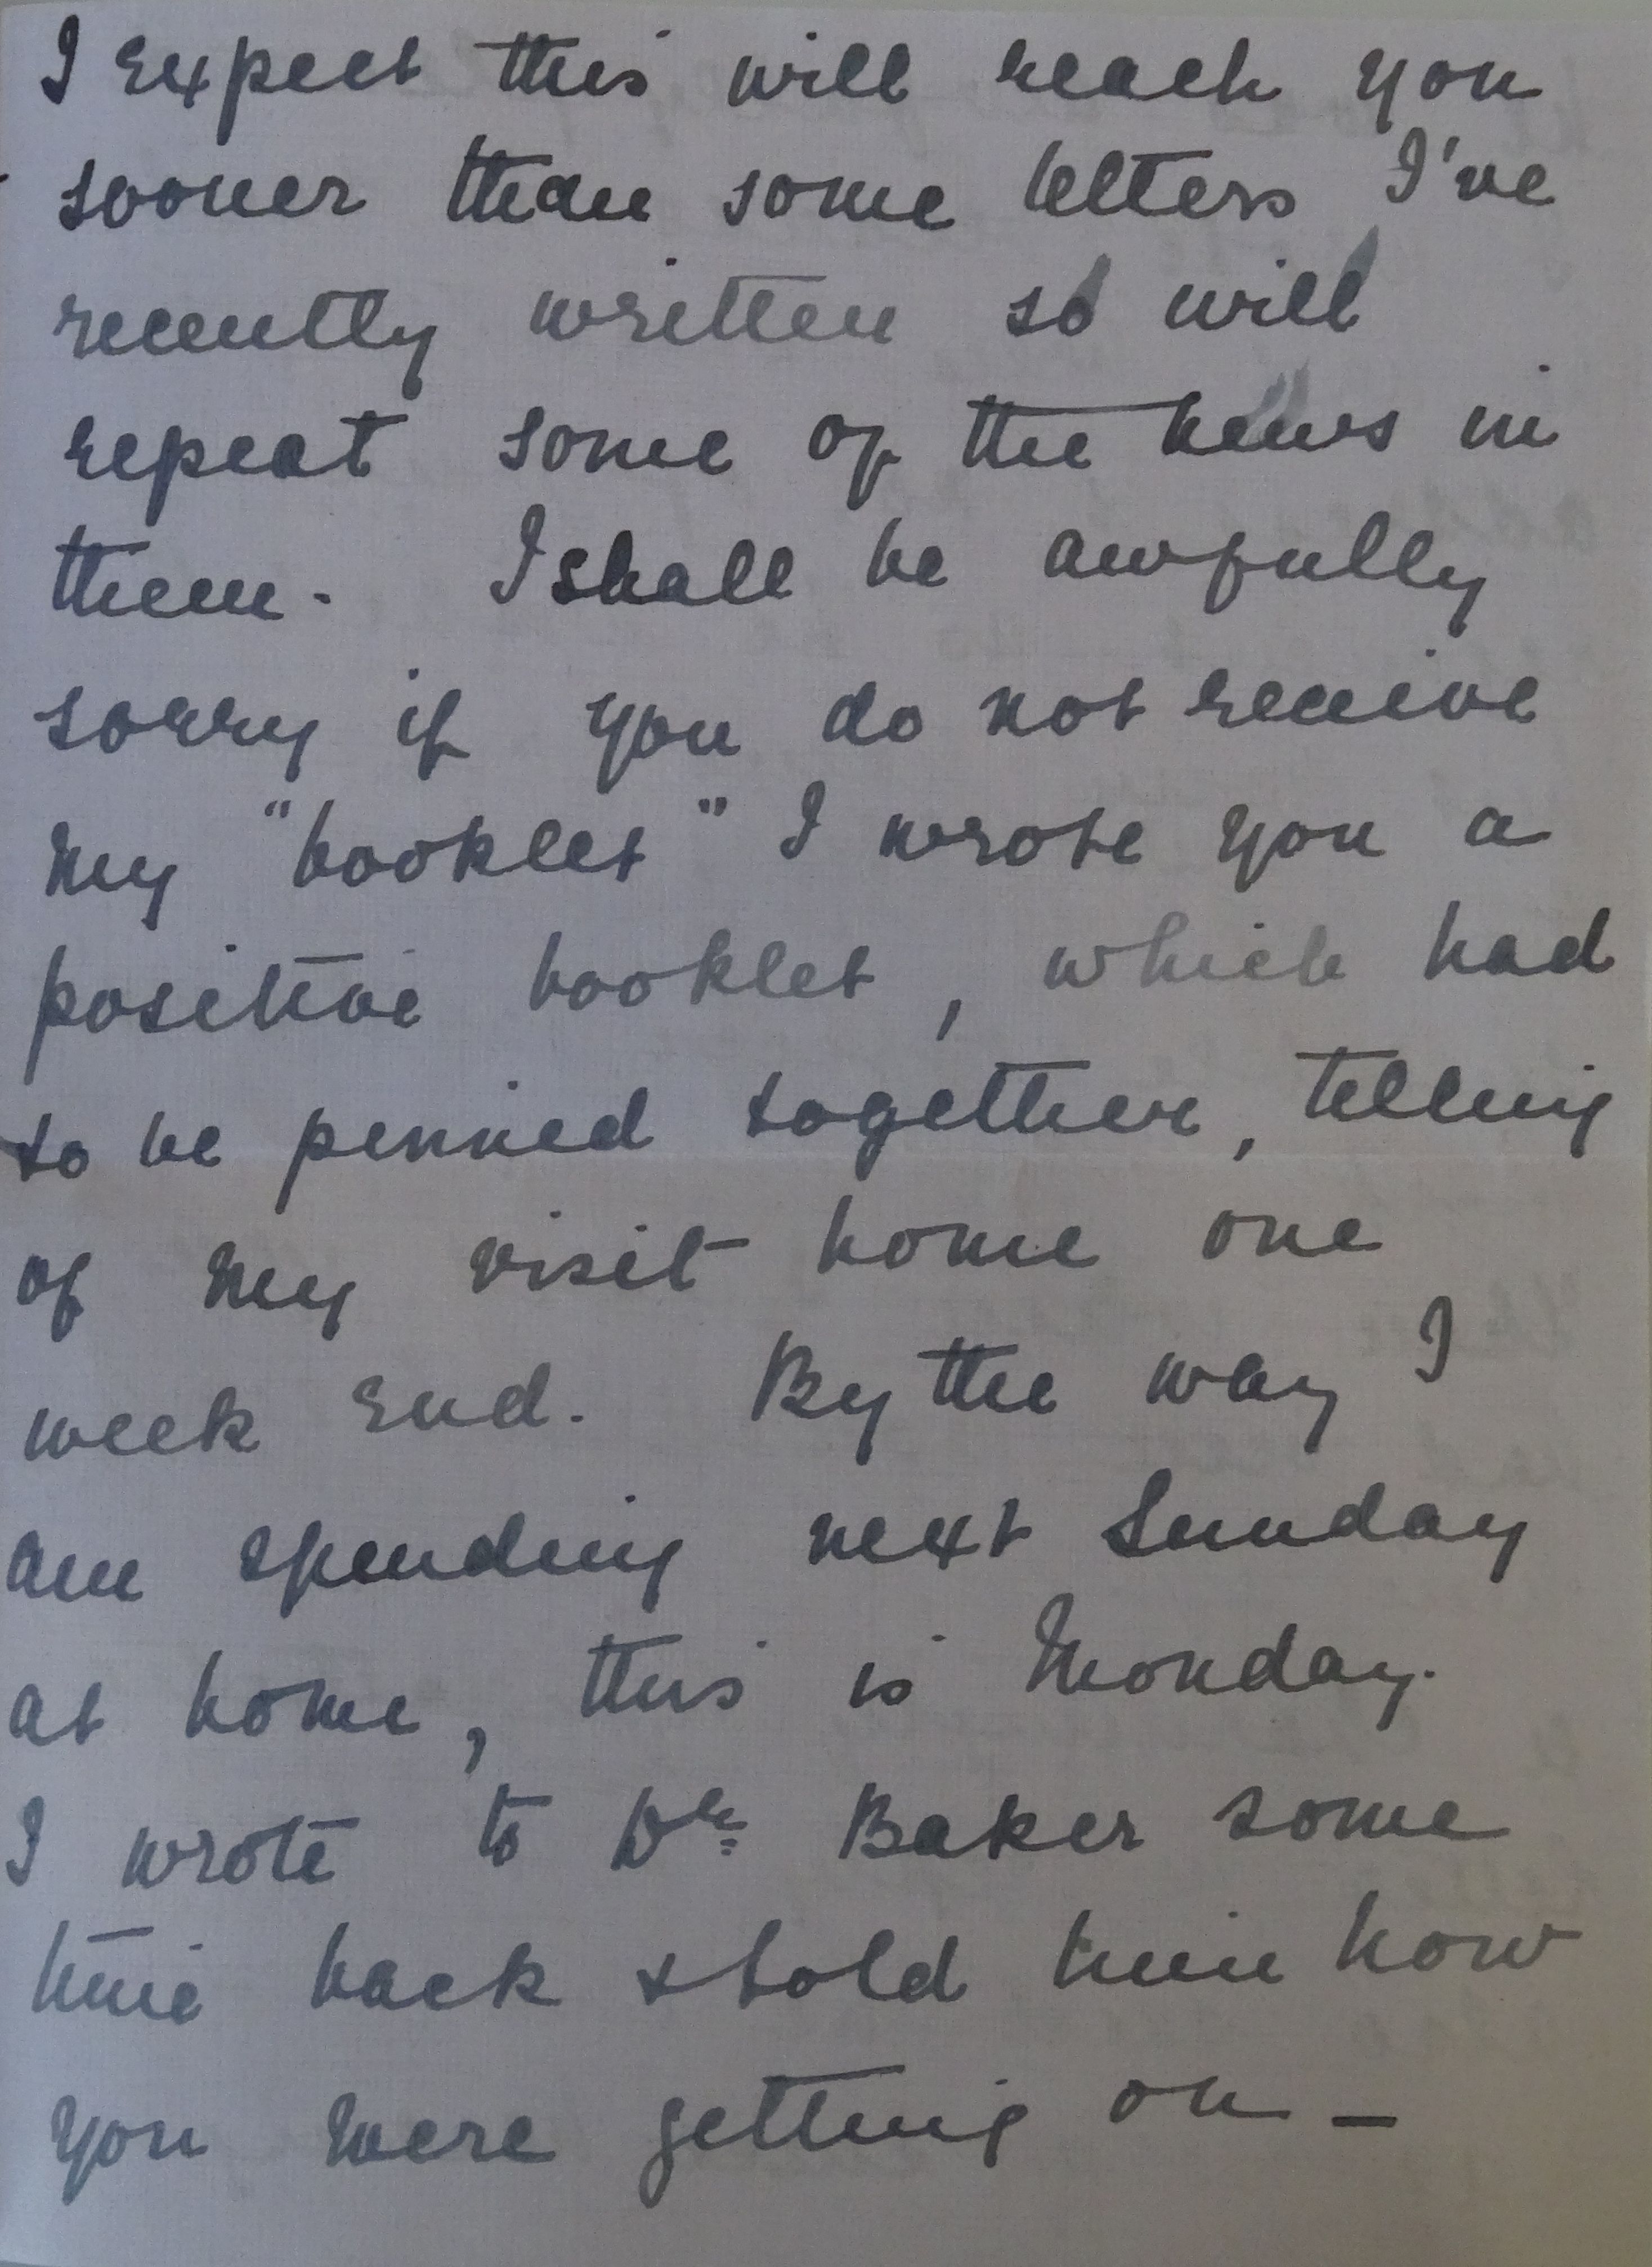 I expect this will reach you
sooner than some letters I've
recently written so will
repeat some of the news in
them. I shall be awfully
sorry if you do not receive
my "booklet" I wrote you a
positive booklet, which had
to be pinned together, telling
of my visit home one
week end. By the way I
am spending next Sunday
at home, this is Monday.
I wrote to Dr. Baker some
time back & told him how
you were getting on -